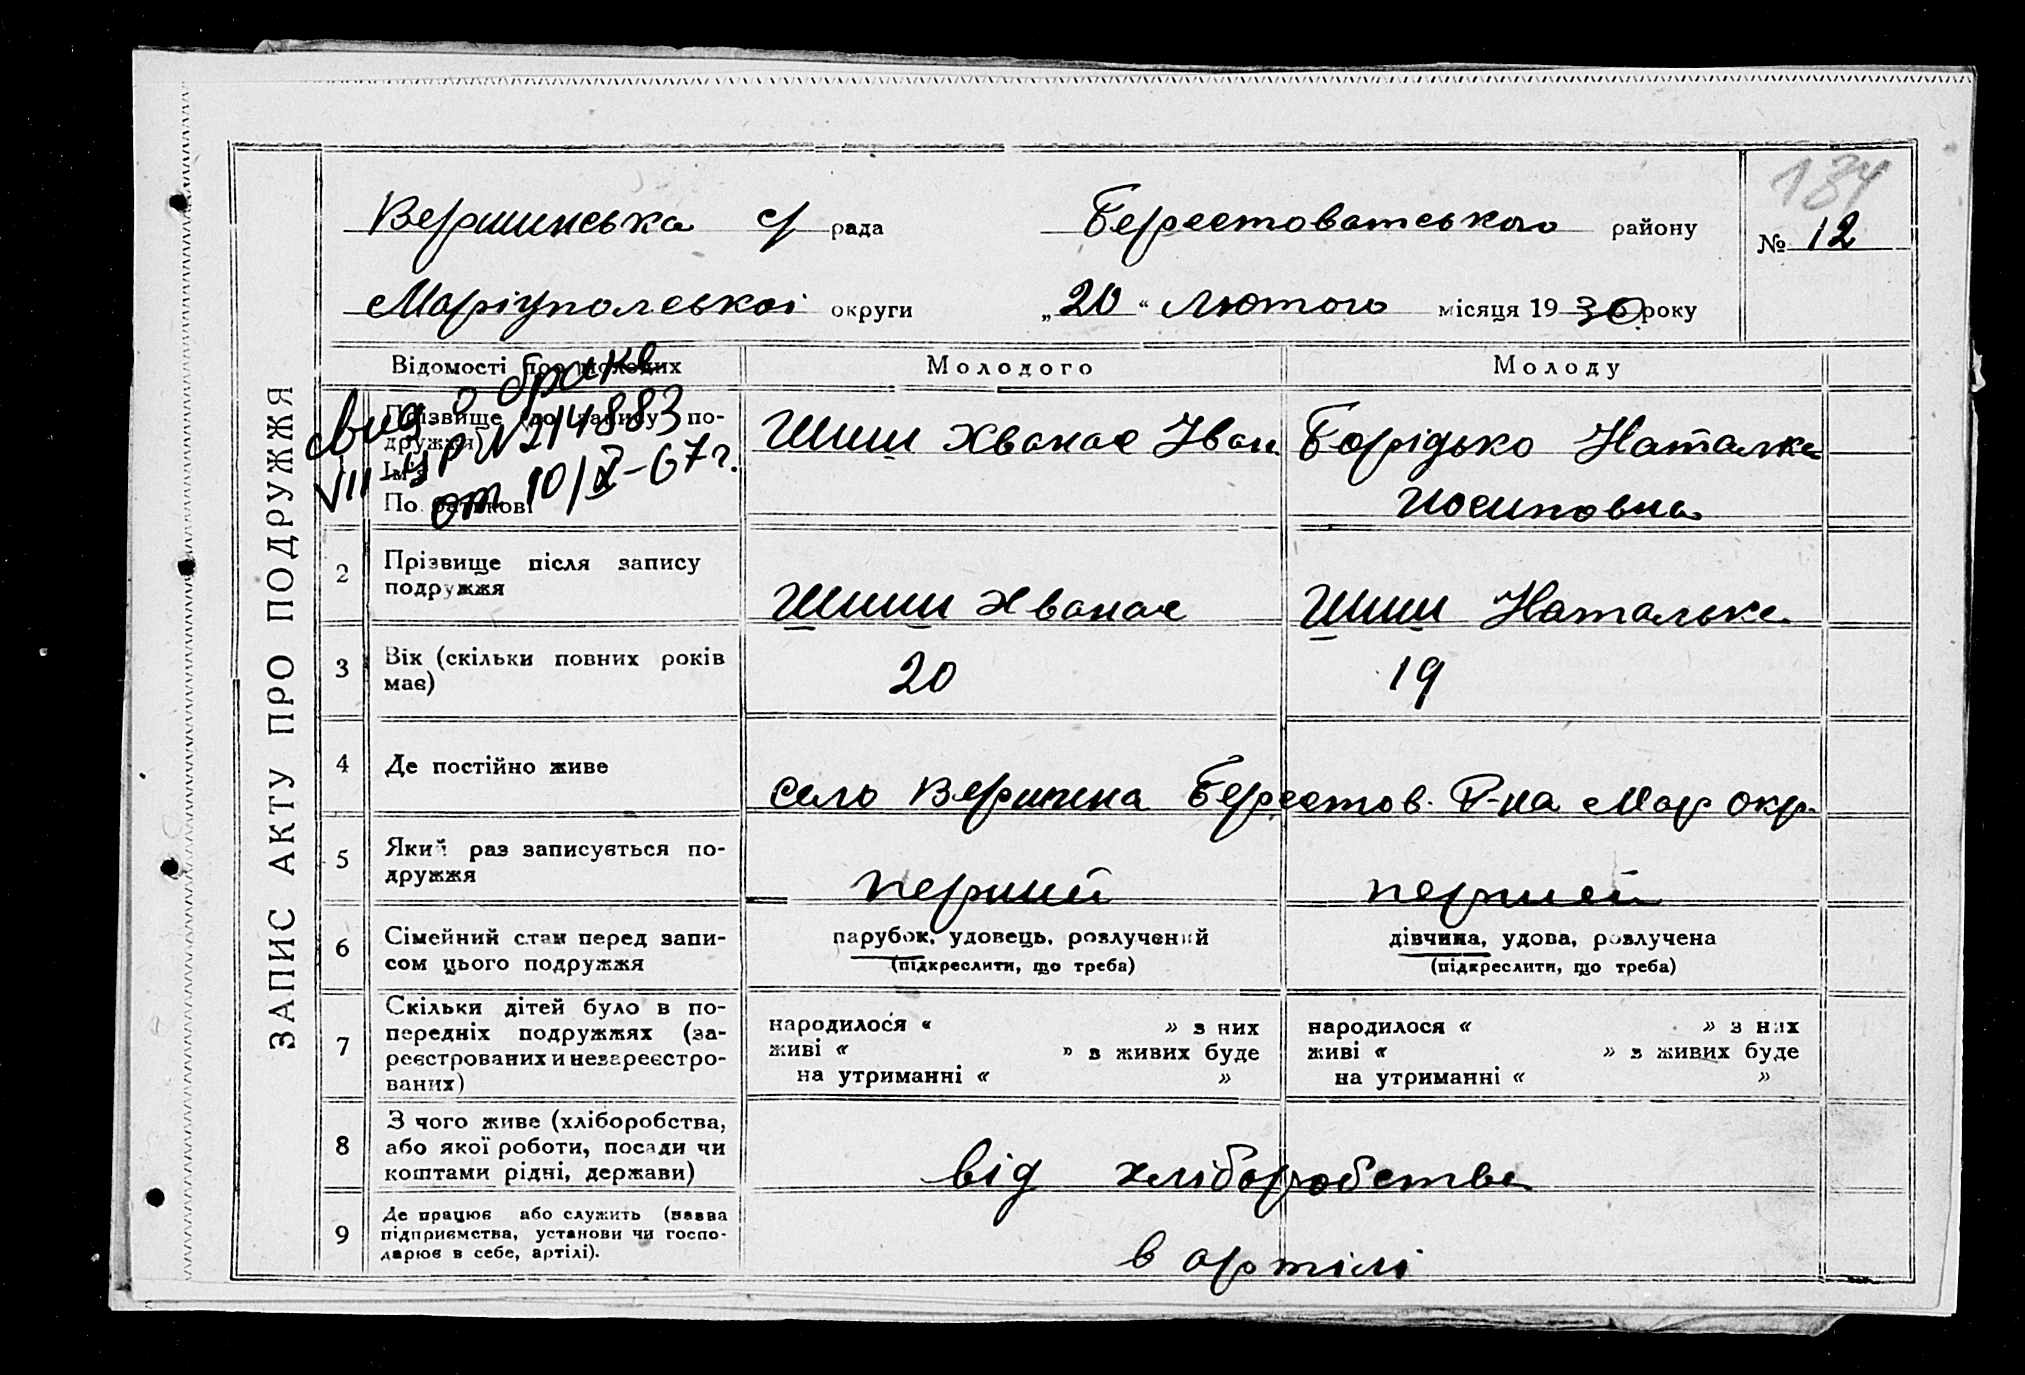 ЗАПИС АКТУ ПРО ПОДРУЖЖЯ
184
Вершинська с/ рада Берестоватського району № 12
Маріупольскоі округи „20“ Лютого місяця 1930 року
Відомості про молодих Молодого Молоду
Свид. о браке
VII-УР №214883
от 10/X-67г.
Прізвище (до запису подружжя)
Ім'я
По батькові
Шиш Хванас Іван Борідько Наталка
Иосиповна
2 Прізвище після запису
подружжя
Шиш Хванас Шиш Наталька
3 Вік (скільки повних років
має)
20 19
4 Де постійно живе
село Вершина Берестов. Р-на Мар окр.
5 Який раз записується по-
дружжя
перший перший
6 Сімейний стан перед запи-
сом цього подружжя
парубок, удовець, розлучений дівчина, удова, розлучена
(підкреслити, що треба) (підкреслити, що треба)
7 Скільки дітей було в по-
передніх подружжях (за-
реєстрованих и незареєстро-
ваних)
народилося “ ” з них народилося “ ” з них
живі “ ” з живих буде живі “ ” з живих буде
на утриманні “ ” на утриманні “ ”
8 З чого живе (хліборобства,
або якої роботи, посади чи
коштами рідні, держави)
від хліборобства
9 Де працює або служить (назва
підприємства, установи чи госпо-
дарює в себе, артілі).
в артілі